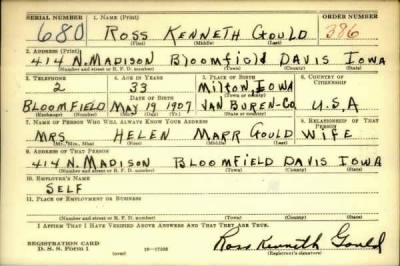 SERIAL NUMBER 1. NAME (Print) ORDER NUMBER
680 ROSS KENNETH GOULD 386
(First) (Middle) (Last)
2. ADDRESS (Print)
414 N. MADISON BLOOMFIELD DAVIS IOWA
(Number and street or R. F. D. number) (Town) (County) (State)
3. TELEPHONE 4. AGE IN YEARS 5. PLACE OF BIRTH 6. COUNTRY OF CITIZENSHIP
2 33 MILTON, IOWA
DATE OF BIRTH (Town or county)
BLOOMFIELD MAY 19 1907 VAN BUREN-CO U.S.A
(Exchange) (Number) (Mo.) (Day) (Yr.) (State or country)
7. NAME OF PERSON WHO WILL ALWAYS KNOW YOUR ADDRESS 8. RELATIONSHIP OF THAT PERSON
MRS HELEN MARR GOULD WIFE
(Mr., Mrs., Miss) (First) (Middle) (Last)
9. ADDRESS OF THAT PERSON
414 N. MADISON BLOOMFIELD DAVIS IOWA
(Number and street or R. F. D. number) (Town) (County) (State)
10. EMPLOYER'S NAME
SELF
11. PLACE OF EMPLOYMENT OR BUSINESS
(Number and street or R. F. D. number) (Town) (County) (State)
I AFFIRM THAT I HAVE VERIFIED ABOVE ANSWERS AND THAT THEY ARE TRUE.
REGISTRATION CARD
D. S. S. Form 1
Ross Kenneth Gould
(Registrant's signature)